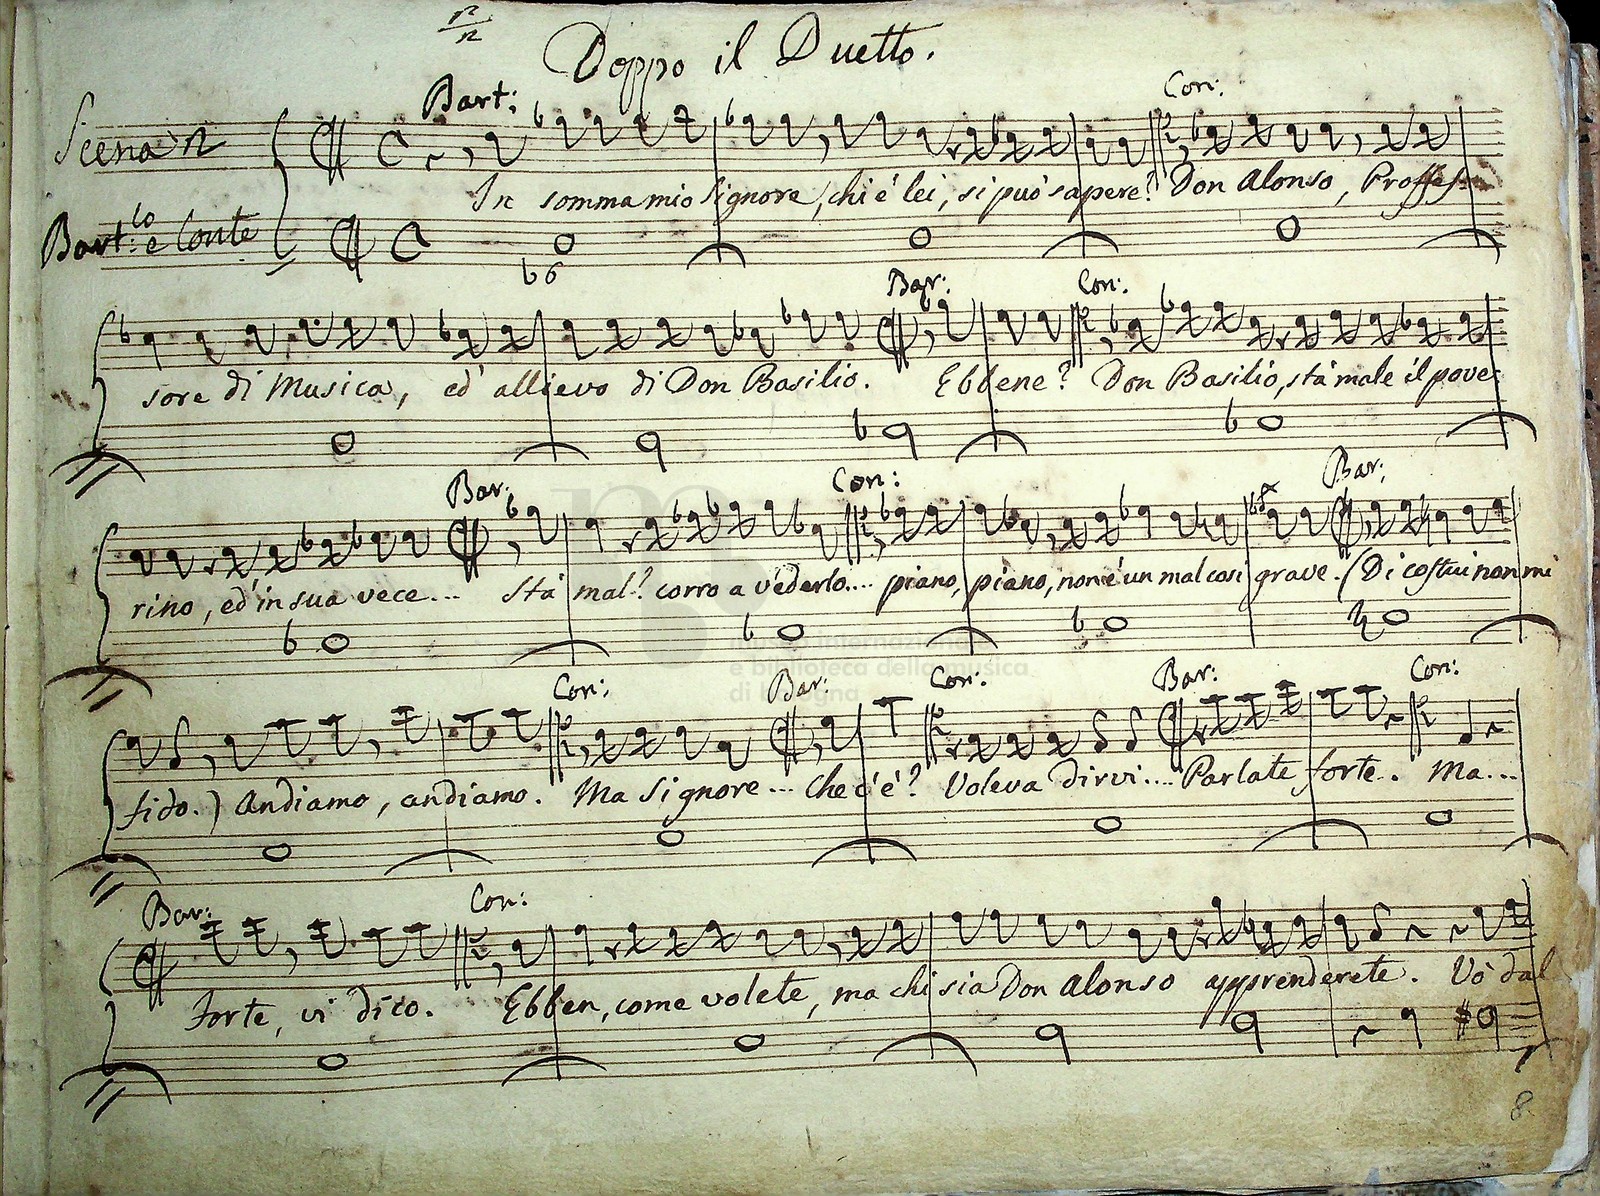 Doppo il Duetto.
Bart: Con:
Scena
In somma mio Signore, chi é lei, si può sapere? Don Alonso, Proffes-
Bart:lo e Conte
b6
Bar: Con:
sore di Musica, ed' allievo di Don Basilio. Ebbene? Don Basilio, stá male il pove
Bar: Con: Bar:
rino, ed' in sua vece... Stá mal? corro a vederlo.... piano, piano, non é un mal cosi grave. (Di costui non mi
Con: Bar: Con: Bar: Con:
fido.) Andiamo, andiamo. Ma Signore... Che c'é? Voleva dirvi.... Parlate forte. Ma...
Bar: Con:
Forte, vi dico. Ebben, come volete, ma chi sia Don Alonso apprenderete. Vò dal
museo internazionale
e biblioteca della musica
di bologna
8